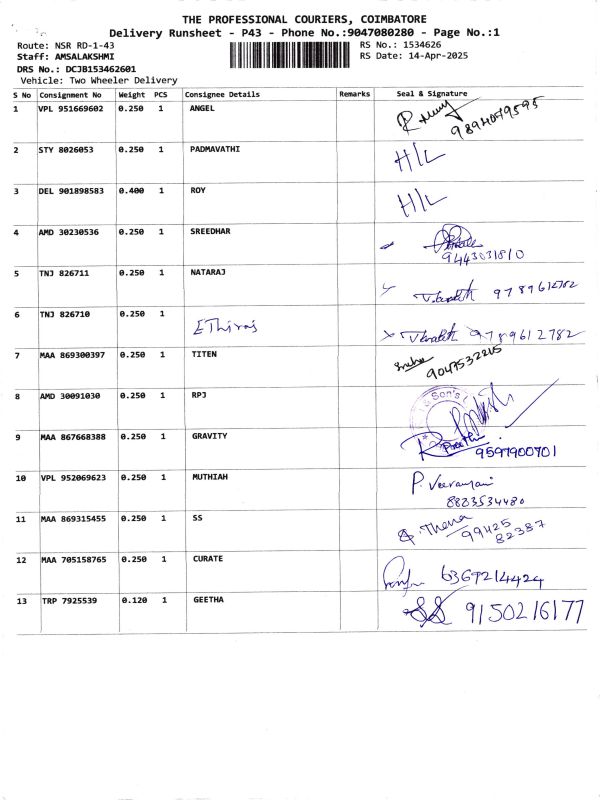 THE PROFESSIONAL COURIERS, COIMBATORE
Delivery Runsheet - P43 - Phone No.:9047080280 - Page No.:1
Route: NSR RD-1-43 RS No.: 1534626
Staff: AMSALAKSHMI RS Date: 14-Apr-2025
DRS No.: DCJB153462601
Vehicle: Two Wheeler Delivery
S No Consignment No Weight PCS Consignee Details Remarks Seal & Signature
1 VPL 951669602 0.250 1 ANGEL
9894079595
2 STY 8026053 0.250 1 PADMAVATHI H/L
3 DEL 901898583 0.400 1 ROY H/L
4 AMD 30230536 0.250 1 SREEDHAR
9443031810
5 TNJ 826711 0.250 1 NATARAJ 9789612782
6 TNJ 826710 0.250 1 EThiraj 9789612782
7 MAA 869300397 0.250 1 TITEN
9047532205
8 AMD 30091030 0.250 1 RPJ
& Son's
9 MAA 867668388 0.250 1 GRAVITY Preethi
9597900701
10 VPL 952069623 0.250 1 MUTHIAH P. Veeramani
8883534480
11 MAA 869315455 0.250 1 SS Thena 99425
82387
12 MAA 705158765 0.250 1 CURATE 6369214424
13 TRP 7925539 0.120 1 GEETHA 9150216177